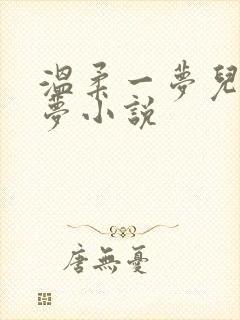 溫柔一夢兒
夢小說
唐無憂